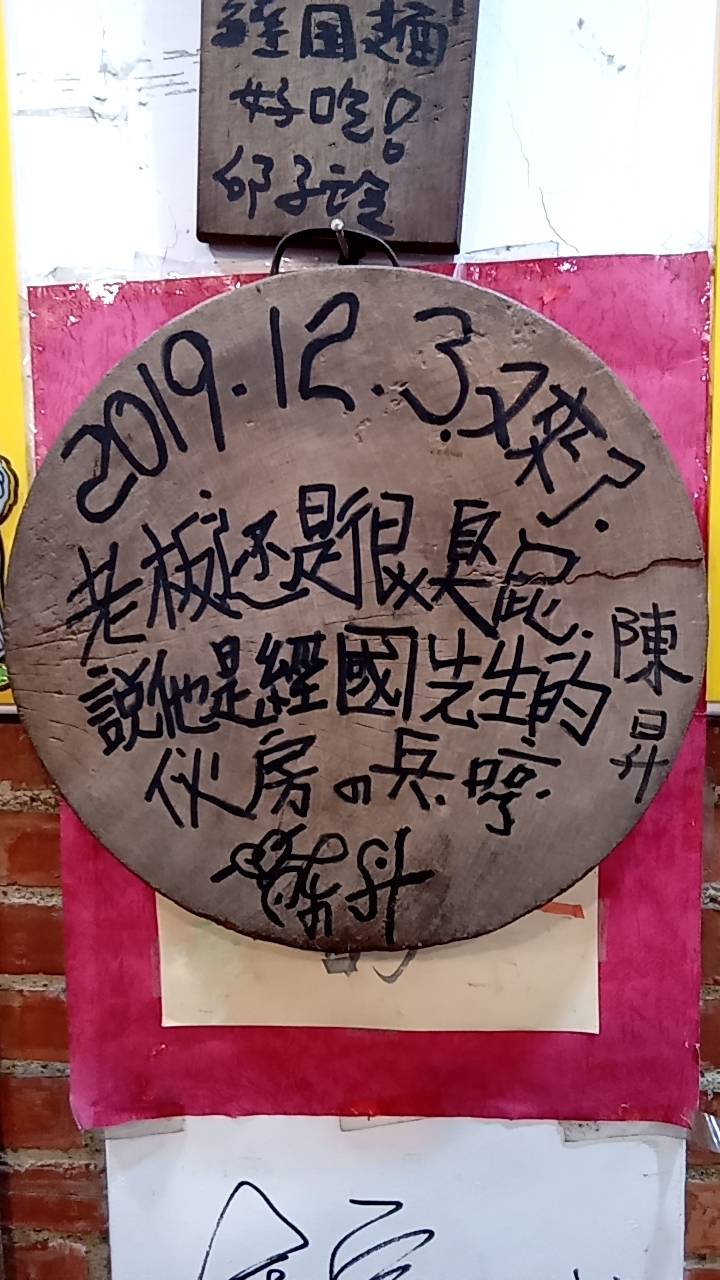 經国麵
好吃!
邱子
2019.12.3.又來了.
老板还是很臭屁.
說他是經國先生的
伙房の兵.哼.
陳昇
陳昇